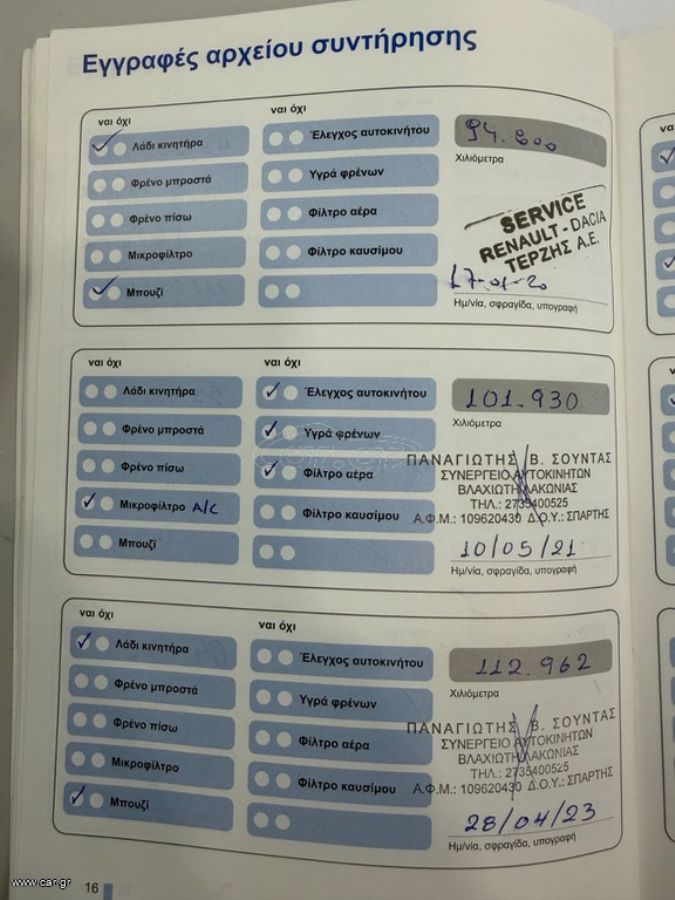 Εγγραφές αρχείου συντήρησης
ναι όχι
ναι όχι
Λάδι κινητήρα
Έλεγχος αυτοκινήτου
94.800
Φρένο μπροστά
Υγρά φρένων
Χιλιόμετρα
Φρένο πίσω
Φίλτρο αέρα
SERVICE
RENAULT - DACIA
ΤΕΡΖΗΣ Α.Ε.
Μικροφίλτρο
Φίλτρο καυσίμου
17-01-20
Μπουζί
Ημ/νία, σφραγίδα, υπογραφή
ναι όχι
ναι όχι
Λάδι κινητήρα
Έλεγχος αυτοκινήτου
101.930
Φρένο μπροστά
Υγρά φρένων
Χιλιόμετρα
Φρένο πίσω
Φίλτρο αέρα
ΠΑΝΑΓΙΩΤΗΣ Β. ΣΟΥΝΤΑΣ
ΣΥΝΕΡΓΕΙΟ ΑΥΤΟΚΙΝΗΤΩΝ
ΒΛΑΧΙΩΤΗ ΛΑΚΩΝΙΑΣ
ΤΗΛ.: 2735400525
Α.Φ.Μ.: 109620430 Δ.Ο.Υ.: ΣΠΑΡΤΗΣ
Μικροφίλτρο A/C
Φίλτρο καυσίμου
Μπουζί
10/05/21
Ημ/νία, σφραγίδα, υπογραφή
ναι όχι
ναι όχι
Λάδι κινητήρα
Έλεγχος αυτοκινήτου
112.962
Φρένο μπροστά
Υγρά φρένων
Χιλιόμετρα
Φρένο πίσω
Φίλτρο αέρα
ΠΑΝΑΓΙΩΤΗΣ Β. ΣΟΥΝΤΑΣ
ΣΥΝΕΡΓΕΙΟ ΑΥΤΟΚΙΝΗΤΩΝ
ΒΛΑΧΙΩΤΗ ΛΑΚΩΝΙΑΣ
ΤΗΛ.: 2735400525
Α.Φ.Μ.: 109620430 Δ.Ο.Υ.: ΣΠΑΡΤΗΣ
Μικροφίλτρο
Φίλτρο καυσίμου
Μπουζί
28/04/23
Ημ/νία, σφραγίδα, υπογραφή
16
www.car.gr